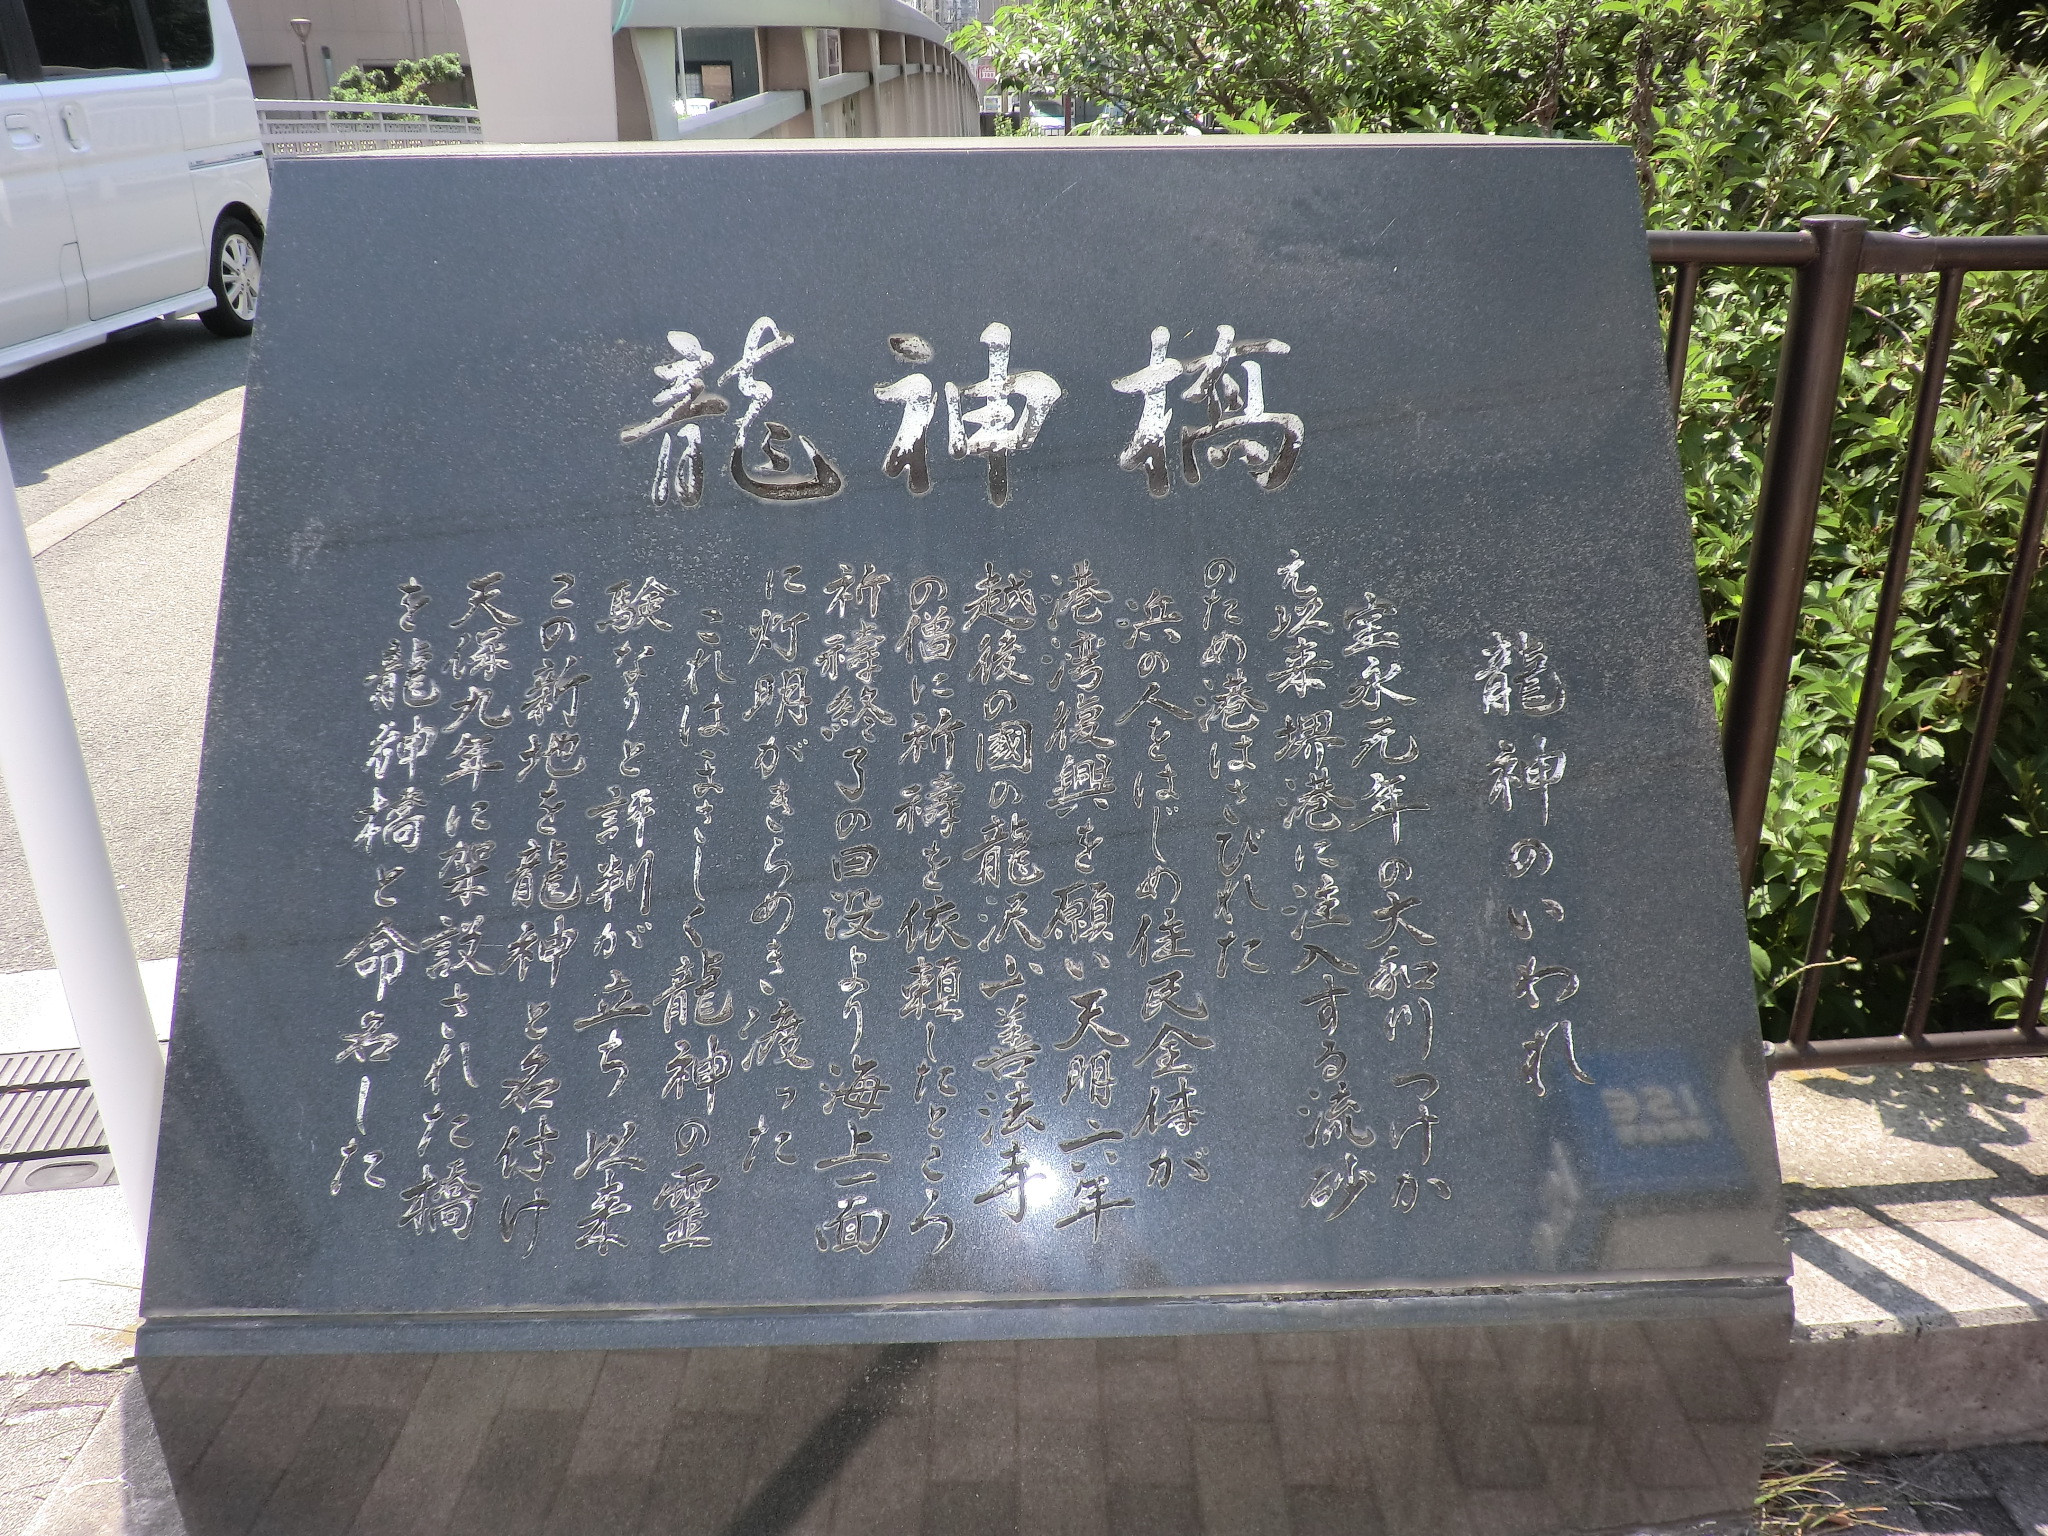 龍神橋
龍神のいわれ
宝永元年の大和川つけか
え以来堺港に注入する流砂
のため港はさびれた
浜の人をはじめ住民全体が
港湾復興を願い天明六年
越後の國の龍沢山善法寺
の僧に祈禱を依頼したところ
祈禱終了の日没より海上一面
に灯明がきらめき渡った
これはまさしく龍神の霊
験なりと評判が立ち以来
この新地を龍神と名付け
天保九年に架設された橋
を龍神橋と命名した